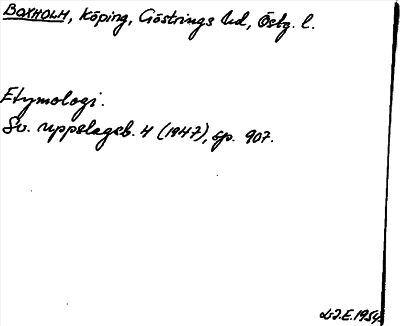 BOXHOLM, Köping, Göstrings hd, Östg. l.
Etymologi.
Sv. uppslagsb. 4 (1947), sp. 907.
L.J.E. 1954.